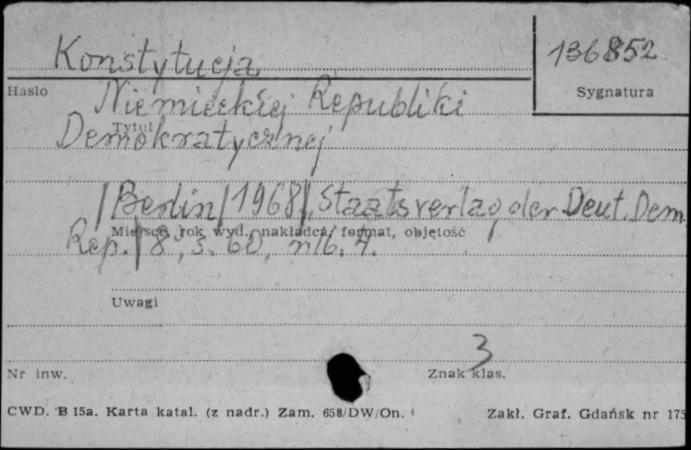 Konstytucja
136852
Hasło
Sygnatura
Niemieckiej Republiki
Tytuł
Demokratycznej
/Berlin/1968/, Staatsverlag der Deut. Dem.
Rep./8°, s. 60,
Miejsce, rok wyd., nakładca, format, objętość
Uwagi
3
Nr inw.
Znak klas.
CWD. B 15a. Karta katal. (z nadr.) Zam. 658/DW/On.
Zakł. Graf. Gdańsk nr 175